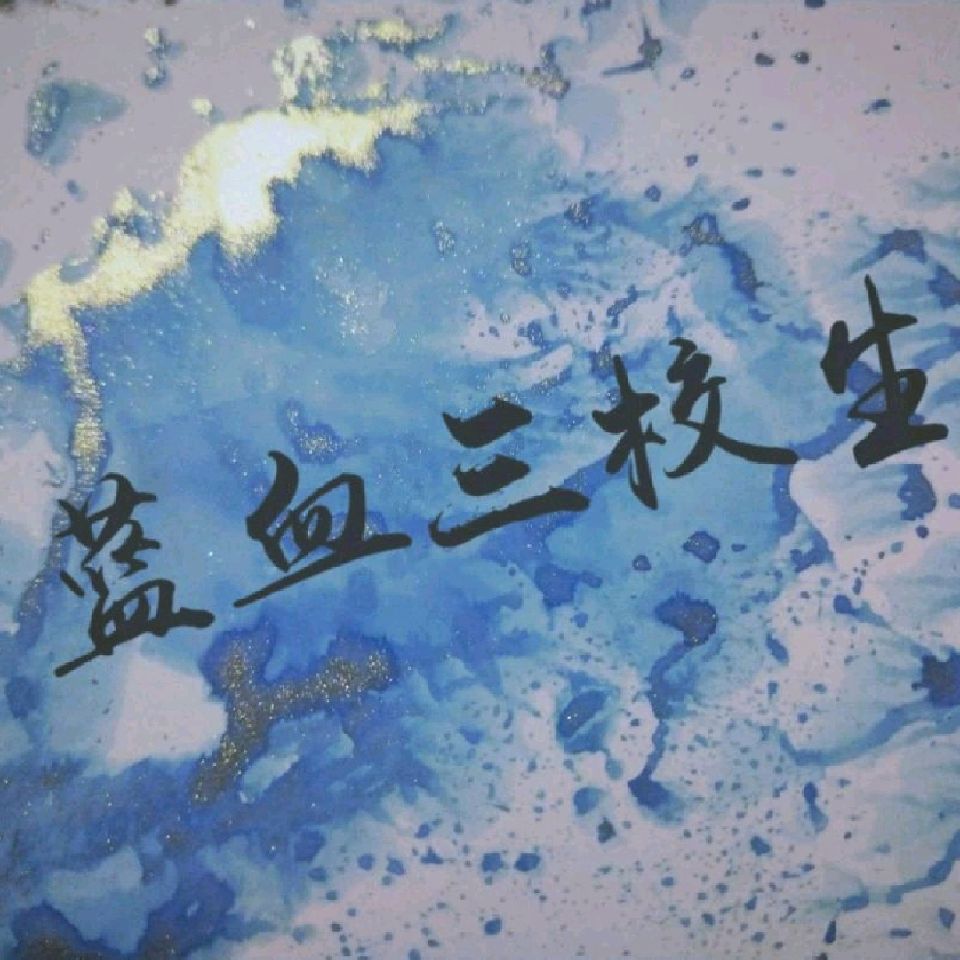 蓝血三校生